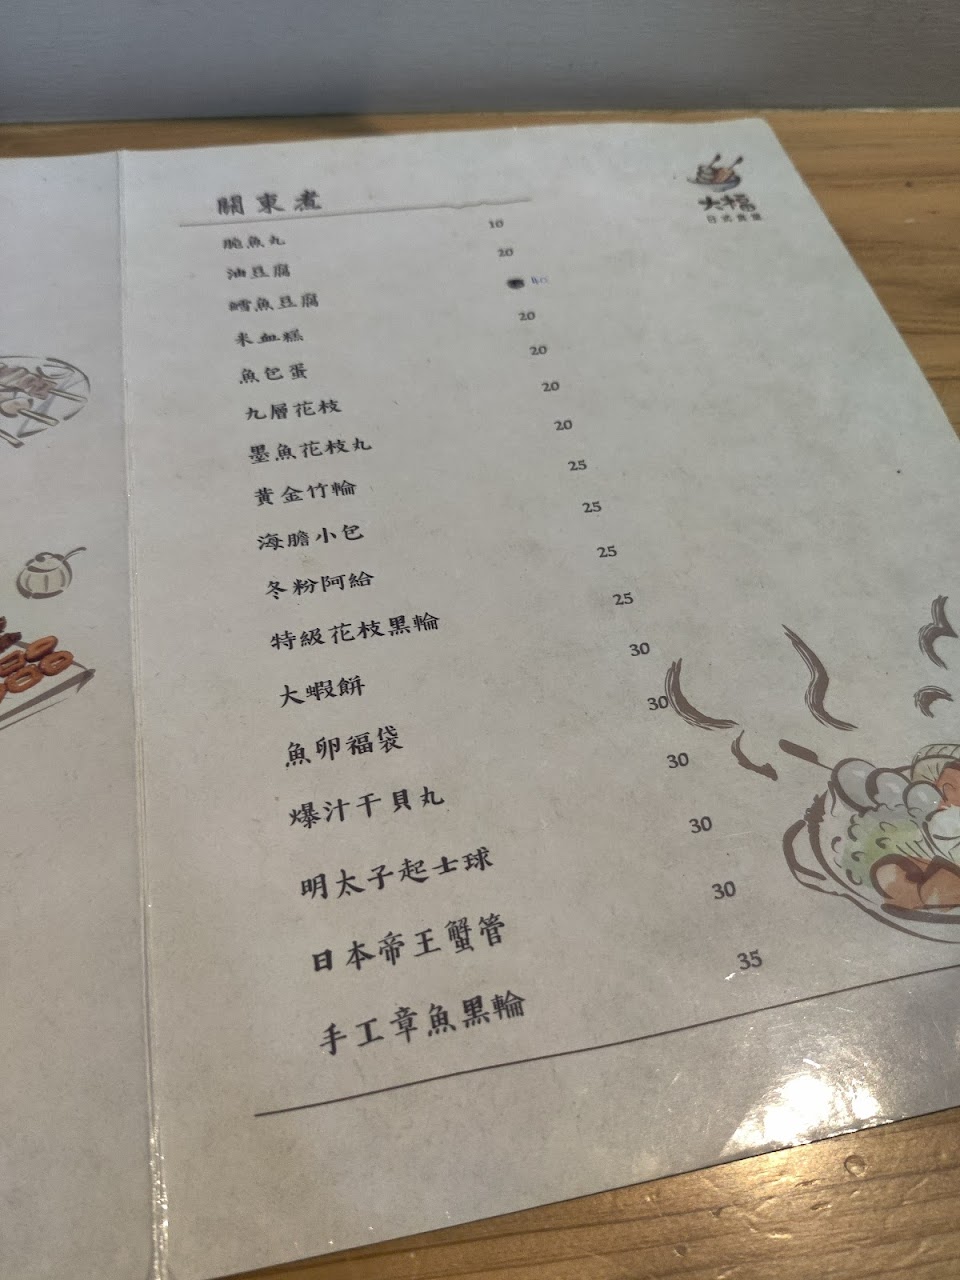 關東煮
大福
日式食堂
脆魚丸 10
油豆腐 20
鱈魚豆腐 40
米血糕 20
魚包蛋 20
九層花枝 20
墨魚花枝丸 20
黃金竹輪 25
海膽小包 25
冬粉阿給 25
特級花枝黑輪 25
大蝦餅 30
魚卵福袋 30
爆汁干貝丸 30
明太子起士球 30
日本帝王蟹管 30
手工章魚黑輪 35